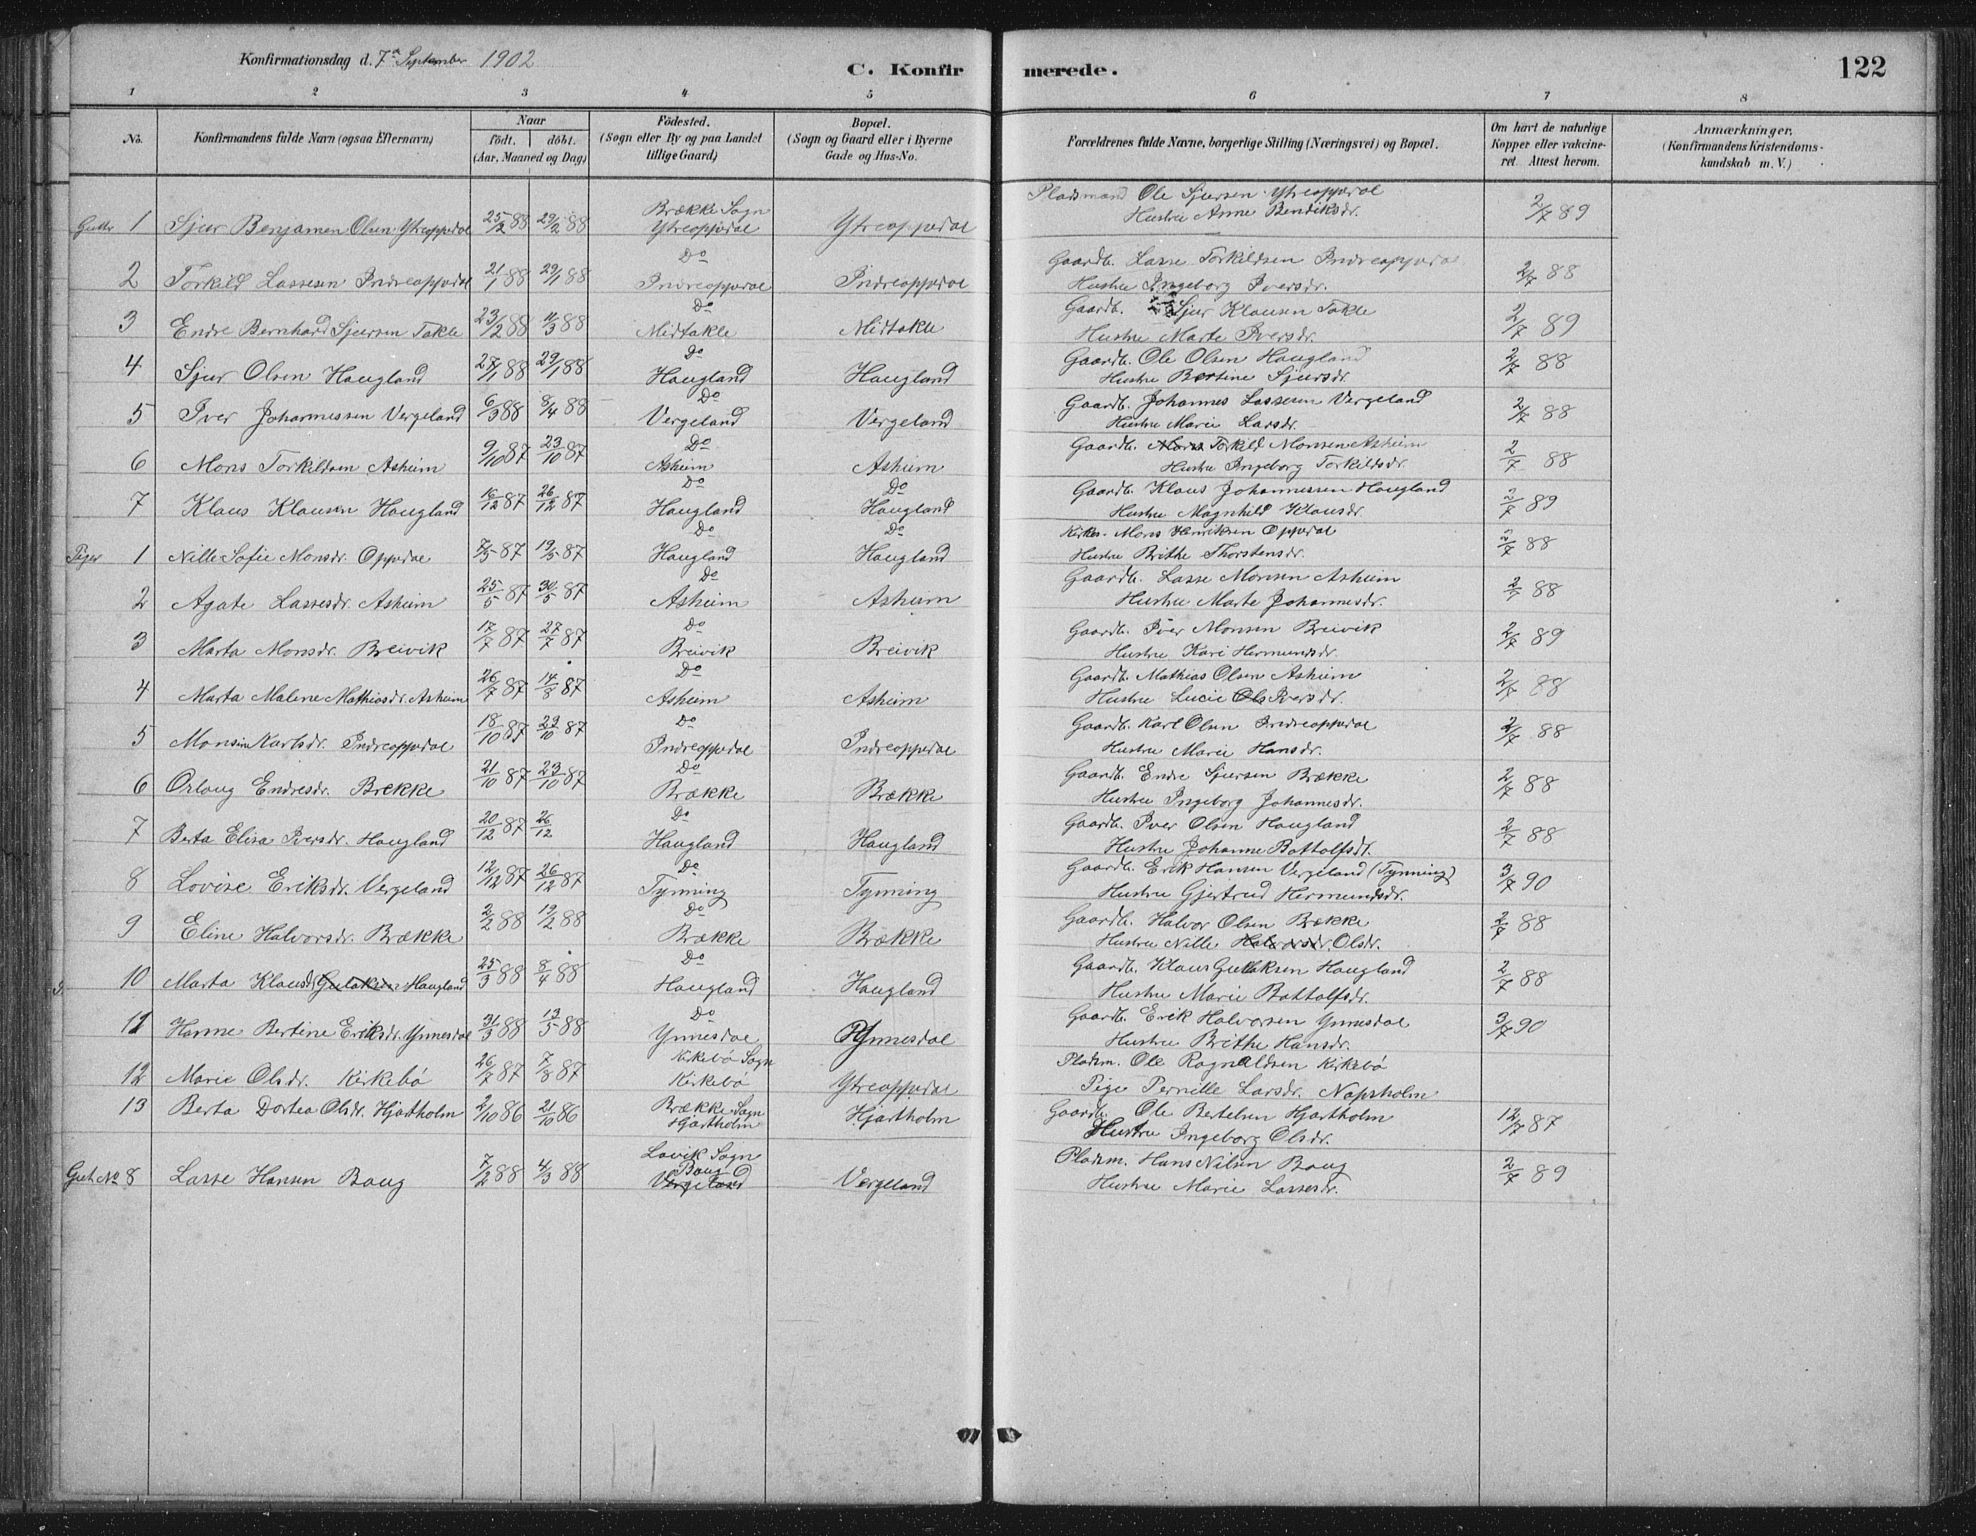 Konfirmationsdag d. 7de September 1902
C. Konfirmerede.
122
1 2 3 4 5 6 7 8
No.
Konfirmandens fulde Navn (ogsaa Efternavn)
Naar
födt. döbt.
(Aar, Maaned og Dag)
Födested.
(Sogn eller By og paa Landet
tillige Gaard)
Bopæl.
(Sogn og Gaard eller i Byerne
Gade og Hus-No.
Forældrenes fulde Navne, borgerlige Stilling (Næringsvei) og Bopæl.
Om havt de naturlige
Kopper eller vakcine-
ret. Attest herom.
Anmærkninger.
(Konfirmandens Kristendoms-
kundskab m. V.)
Gutter 1 Sjur Benjamen Olsen Ytreoppdal 25/2 88 29/2 88 Brække Sogn Ytreoppdal Ytreoppedal Pladsmand Ole Sjursen Ytreoppdal
Hustru Anne Bendiksdr. 2/7 89
2 Torkild Lassesen Indreoppdal 21/1 88 29/1 88 Do Indreoppdal Indreoppdal Gaardb. Lasse Torkildsen Indreoppdal
Hustru Ingeborg Iversdr. 2/7 88
3 Endre Bernhard Sjursen Takle 23/2 88 11/3 88 Do Midtakle Midtakle Gaardb. Sjur Klausen Takle
Hustru Marte Iversdr. 2/7 89
4 Sjur Olsen Haugland 28/1 88 29/1 88 Do Haugland Haugland Gaardb. Ole Olsen Haugland
Hustru Bertine Sjursdr. 2/7 88
5 Iver Johannessen Vergeland 6/3 88 8/4 88 Do Vergeland Vergeland Gaardb. Johannes Lassesen Vergeland
Hustru Marie Larsdr. 2/7 88
6 Mons Torkildsen Asheim 9/10 87 23/10 87 Do Asheim Asheim Gaardb. Mons Torkild Monsen Asheim
Hustru Ingeborg Torkildsdr. 2/7 88
7 Klaus Klausen Haugland 16/12 87 26/12 87 Do Haugland Do Haugland Gaardb. Klaus Johannessen Haugland
Hustru Magnhild Klausdr. 2/7 89
Piger 1 Nille Sofie Monsdr. Oppdal 7/5 87 19/5 87 Do Haugland Do Haugland Kirkes. Mons Henriksen Oppdal
Hustru Brithe Thorstensdr. 2/7 88
2 Agate Lassesdr. Asheim 25/5 87 30/5 87 Do Asheim Asheim Gaardb. Lasse Monsen Asheim
Hustru Marte Johannesdr. 2/7 88
3 Marta Monsdr. Breivik 17/7 87 27/7 87 Do Breivik Breivik Gaardb. Iver Monsen Breivik
Hustru Kari Hermundsdr. 2/7 89
4 Marta Malene Mathiasdr. Asheim 26/7 87 14/8 87 Do Asheim Asheim Gaardb. Mathias Olsen Asheim
Hustru Lucie Ols Iversdr. 2/7 88
5 Monsine Karlsdr. Indreoppdal 18/10 87 23/10 87 Do Indreoppdal Indreoppdal Gaardb. Karl Olsen Indreoppdal
Hustru Marie Hansdr. 2/7 88
6 Orlaug Endresdr. Brekke 21/10 87 23/10 87 Do Brække Brække Gaardb. Endre Sjursen Brække
Hustru Ingeborg Johannesdr. 2/7 88
7 Berta Elisa Iversdr. Haugland 20/12 87 26/12 Do Haugland Haugland Gaardb. Iver Olsen Haugland
Hustru Johanne Bottolfsdt. 2/7 88
8 Lovise Eriksdr. Vergeland 12/12 87 26/12 87 Do Tynning Tynning Gaardb. Erik Hansen Vergeland (Tynning)
Hustru Gjertrud Hermundsdr. 3/7 90
9 Eline Halvorsdr. Brække 2/2 88 19/2 88 Do Brække Brække Gaardb. Halvor Olsen Brække
Hustru Nille Halvorsdr. Olsdr. 2/7 88
10 Marta Klausdr Gulaksen Haugland 25/3 88 8/4 88 Do Haugland Haugland Gaardb. Klaus Gulaksen Haugland
Hustru Marie Bottolfsdr. 2/7 88
11 Hanne Bertine Eriksdr. Ynnesdal 31/3 88 13/5 88 Do Ynnesdal Ynnesdal Gaardb. Erik Halvorsen Ynnesdal
Hustru Brithe Hansdr. 3/7 90
12 Marie Olsdr. Kirkebø 26/7 87 7/8 87 Kirkebø Sogn Kirkebø Ytreoppdal Pladsm. Ole Ragnaldsen Kirkebø
Pige Pernille Larsdr. Napsholm
13 Berta Dortea Olsdr. Hjartholm 2/10 86 21/10 86 Brække Sogn Hjartholm Hjartholm Gaardb. Ole Bertelsen Hjartholm
Hustru Ingeborg Olsdr. 12/7 87
Gut No 8 Lasse Hansen Baug 7/2 88 4/3 88 Lavik Sogn Baug Vergeland Vergeland Pladsm. Hans Nilsen Baug
Hustru Marie Lassesdr. 2/7 89